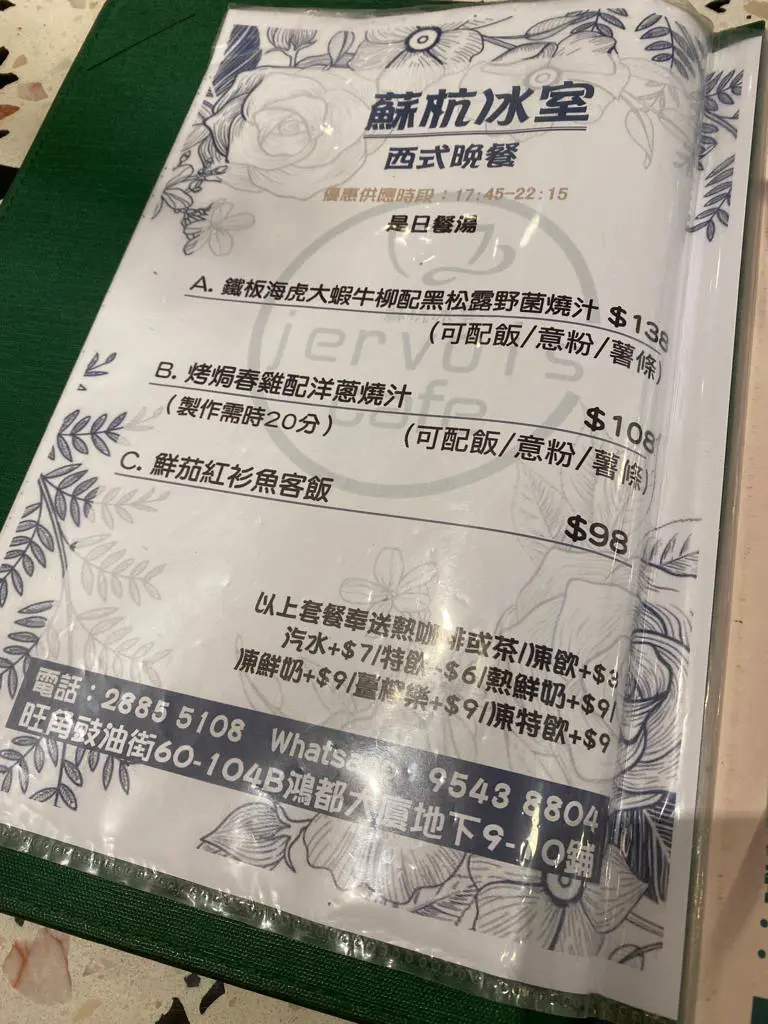 蘇杭冰室
西式晚餐
優惠供應時段：17:45-22:15
是日餐湯
A. 鐵板海虎大蝦牛柳配黑松露野菌燒汁 $138
(可配飯/意粉/薯條)
jervois
cafe
B. 烤焗春雞配洋蔥燒汁 $108
(製作需時20分) (可配飯/意粉/薯條)
C. 鮮茄紅衫魚客飯
$98
以上套餐奉送熱咖啡或茹/凍飲+$3
汽水+$7/特飲+$6/熱鮮奶+$9/
凍鮮奶+$9/檸樂+$9/凍特飲+$9
電話：2885 5108 Whatsapp：9543 8804
旺角豉油街60-104B鴻都大廈地下9-10鋪